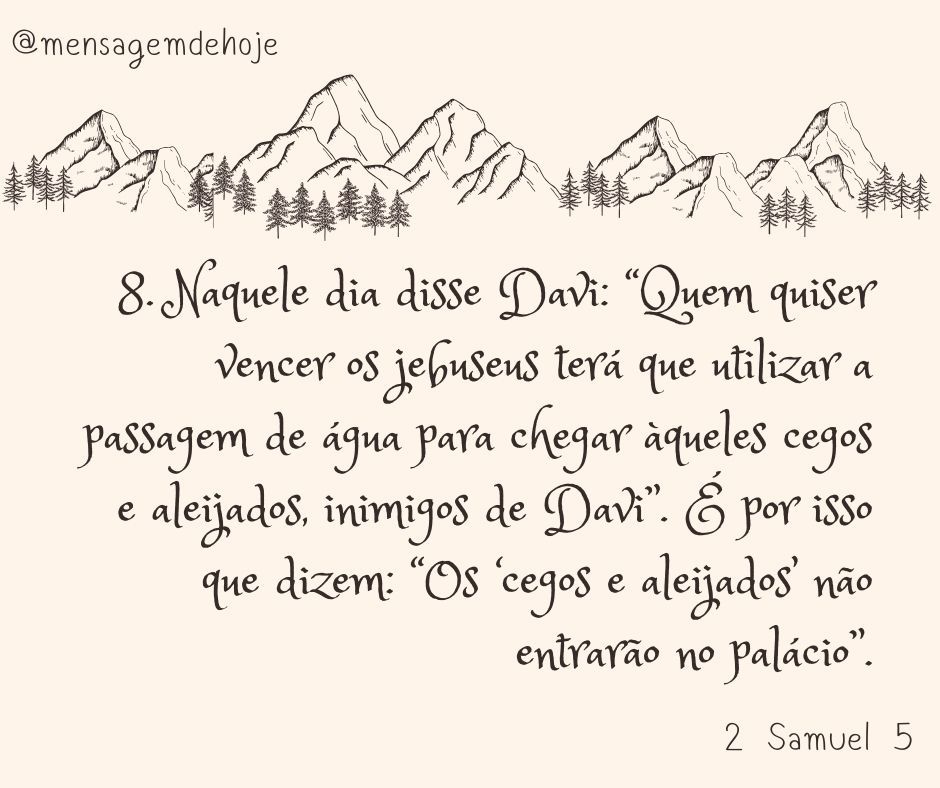 @mensagemdehoje
8. Naquele dia disse Davi: “Quem quiser
vencer os jebuseus terá que utilizar a
passagem de água para chegar àqueles cegos
e aleijados, inimigos de Davi”. É por isso
que dizem: “Os ‘cegos e aleijados’ não
entrarão no palácio”.
2 Samuel 5